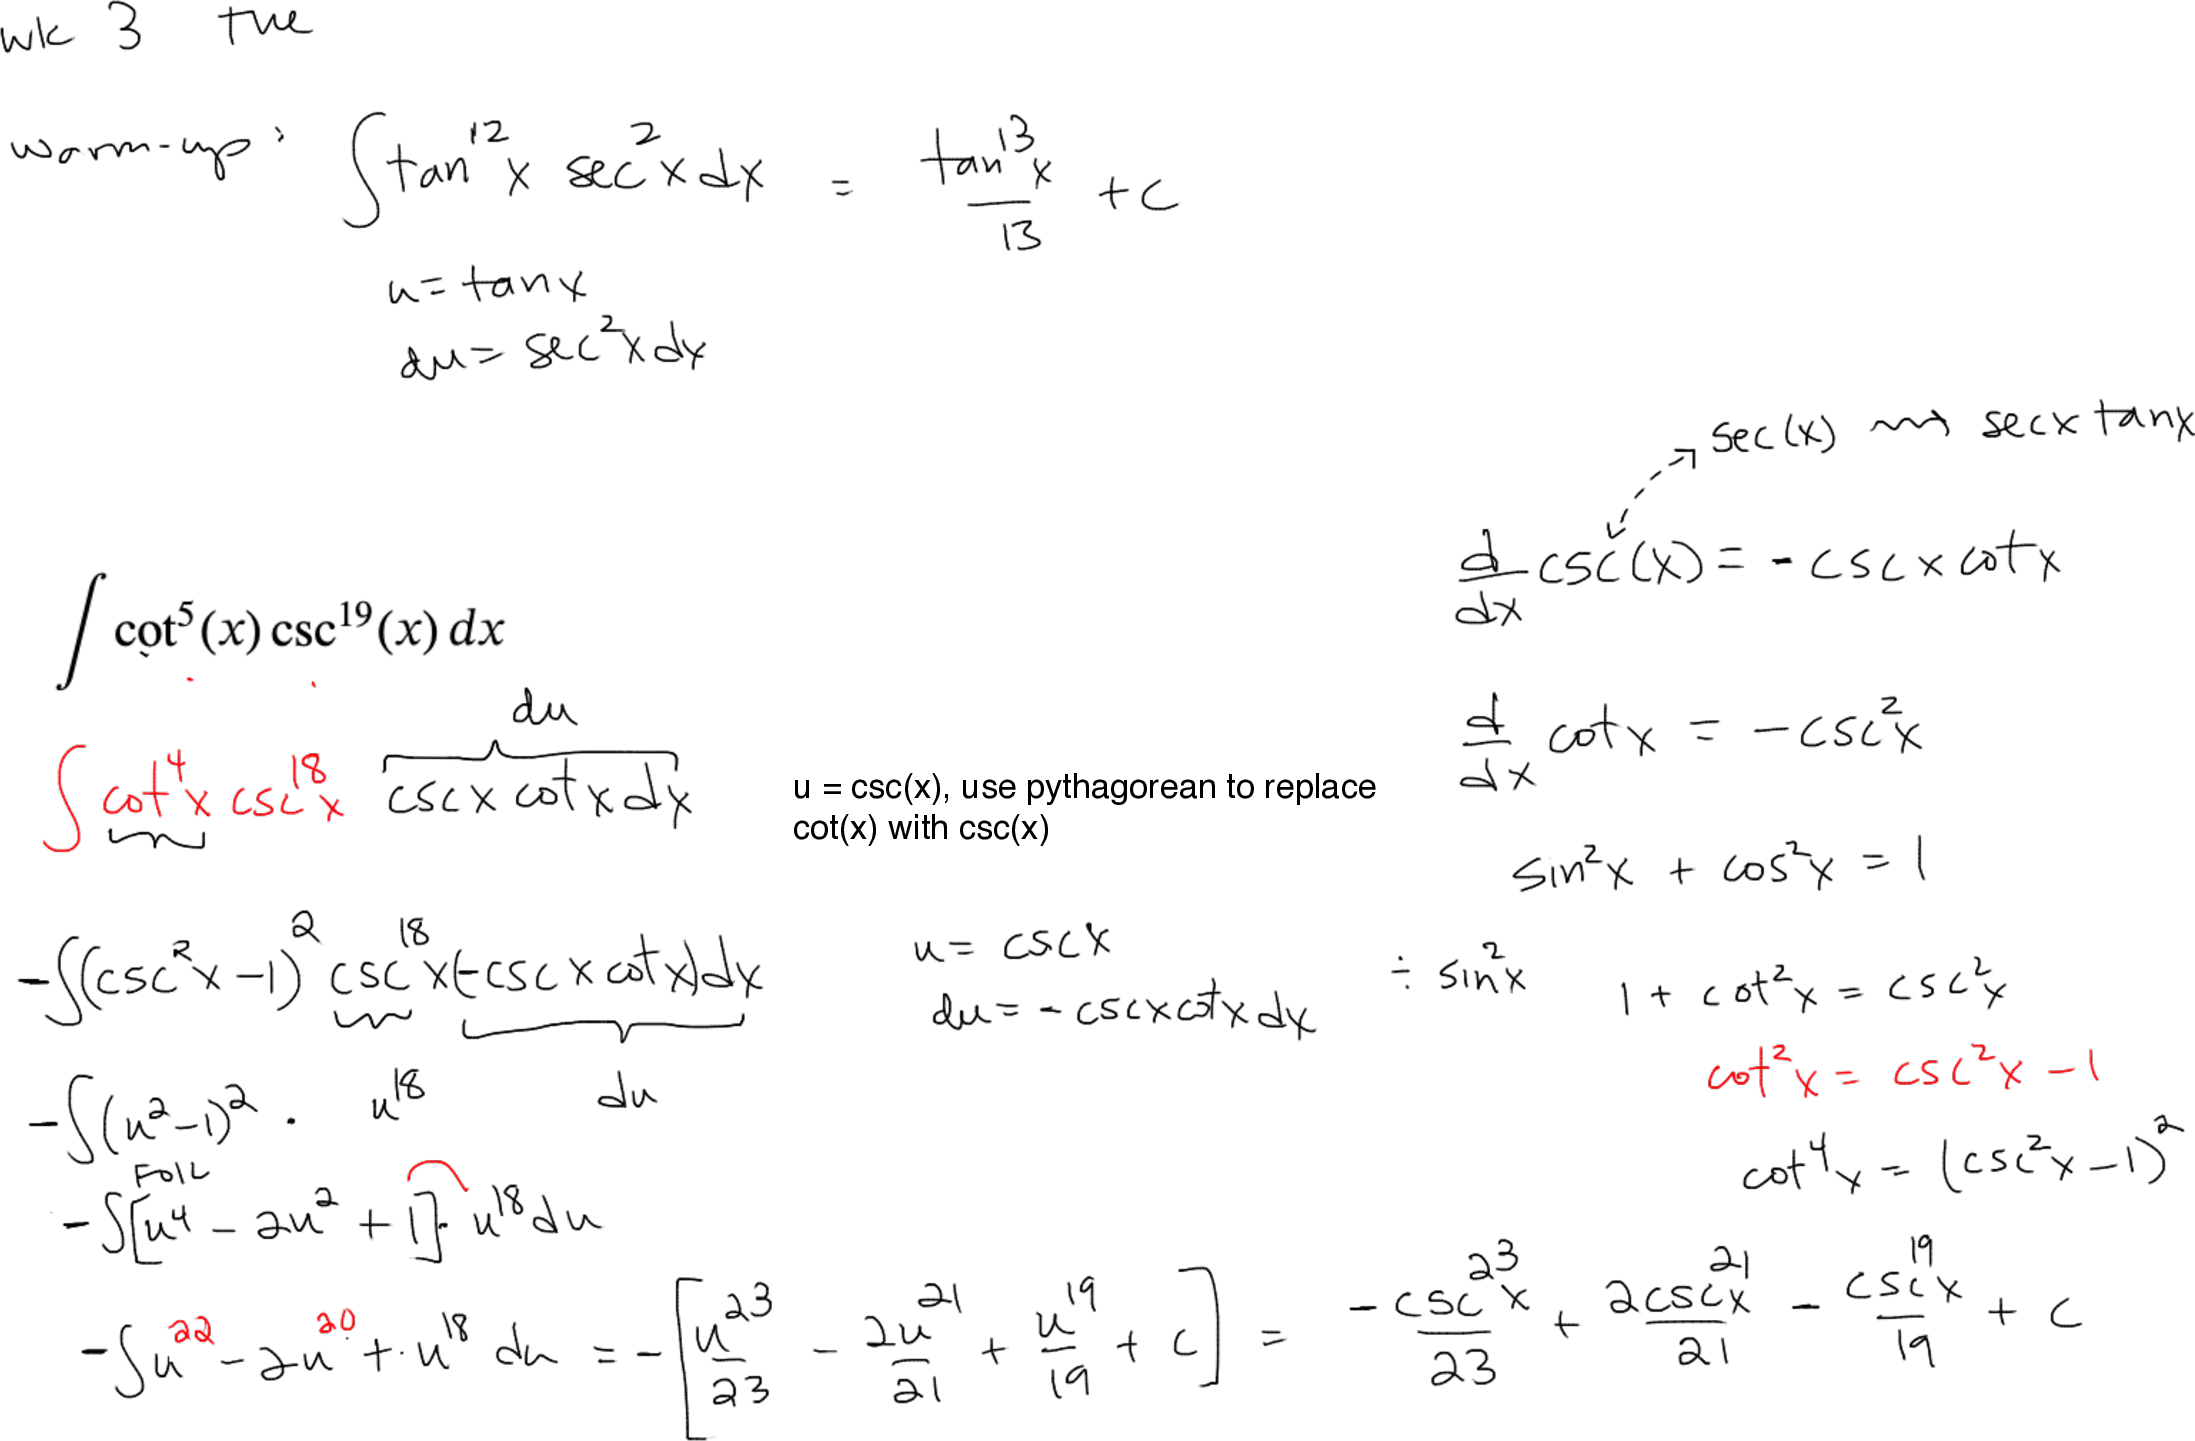 wk 3 tue
warm-up: ∫tan¹²x sec²x dx = tan¹³x/13 + c
u = tanx
du = sec²x dx
sec(x) ⇝ secx tanx
d/dx csc(x) = - cscx cotx
∫ cot⁵(x) csc¹⁹(x) dx
du
d/dx cotx = -csc²x
∫ cot⁴x csc¹⁸x cscx cotx dx
u = csc(x), use pythagorean to replace
cot(x) with csc(x)
sin²x + cos²x = 1
-∫(csc²x-1)² csc¹⁸x(-cscx cotx)dx
u = cscx
du = - cscxcotx dx
÷ sin²x 1 + cot²x = csc²x
cot²x = csc²x - 1
-∫(u²-1)² · u¹⁸ du
cot⁴x = (csc²x-1)²
FOIL
-∫[u⁴ - 2u² + 1]· u¹⁸ du
-∫u²² - 2u²⁰ + u¹⁸ du = -[u²³/23 - 2u²¹/21 + u¹⁹/19 + c] = -csc²³x/23 + 2csc²¹x/21 - csc¹⁹x/19 + c